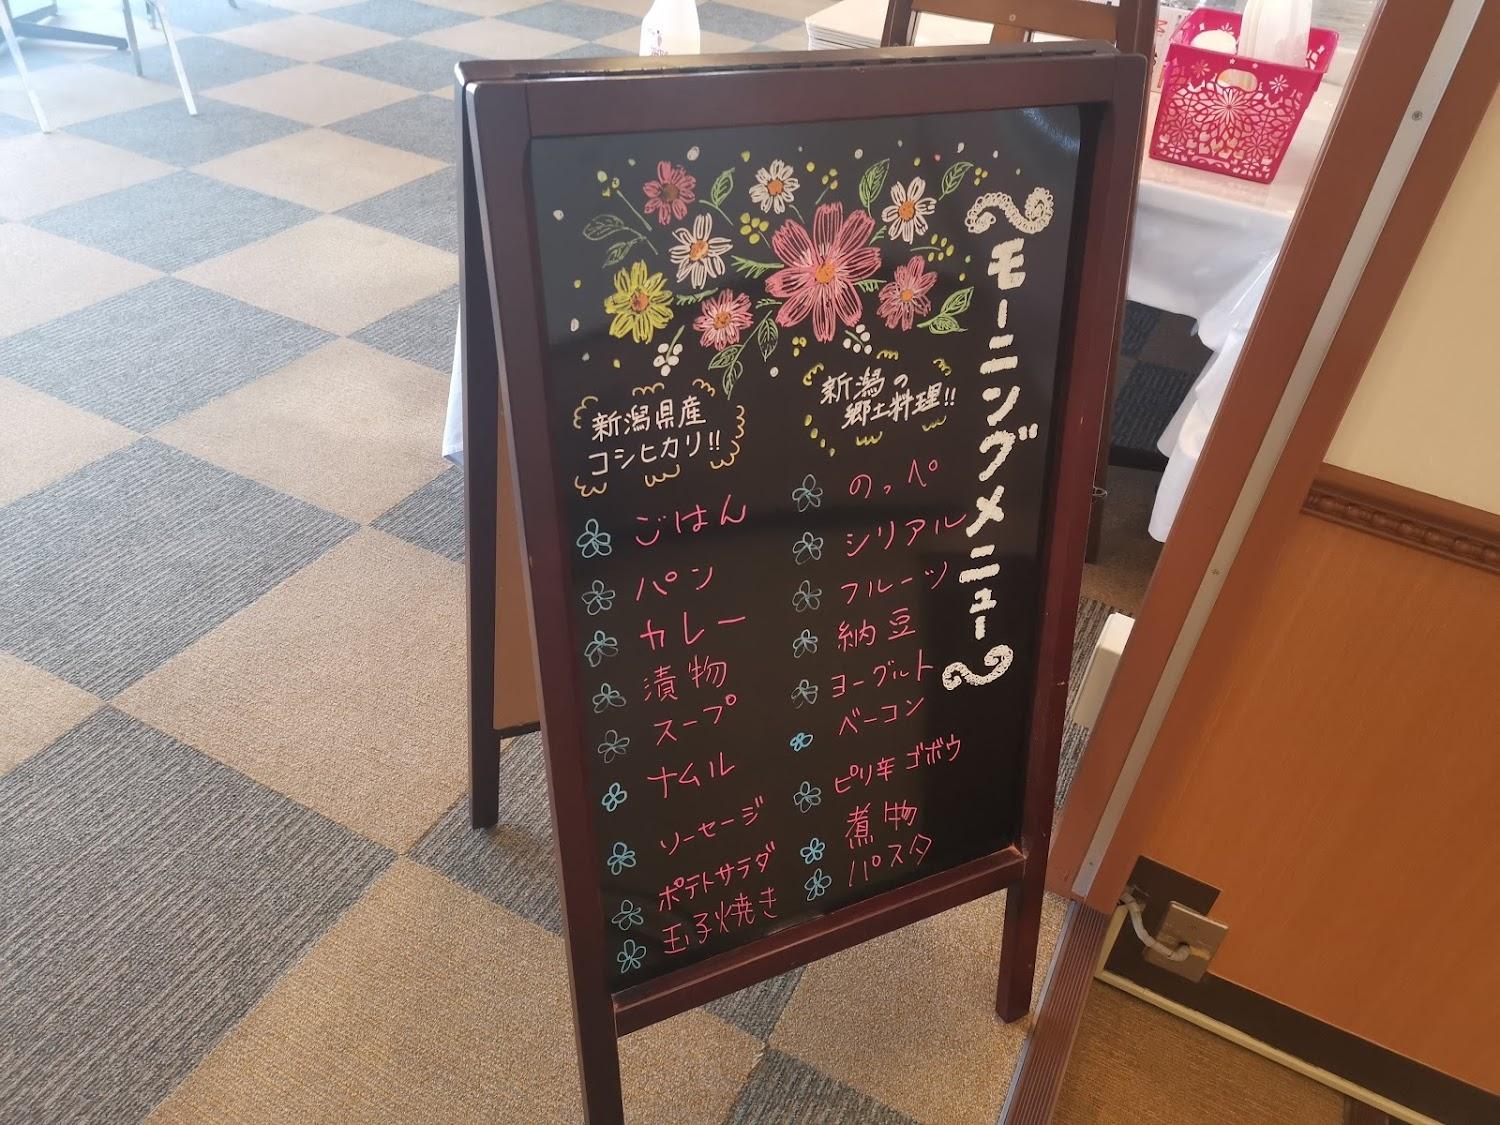 モーニングメニュー
新潟県産
コシヒカリ!!
ごはん
パン
カレー
漬物
スープ
ナムル
ソーセージ
ポテトサラダ
玉子焼き
新潟の
郷土料理!!
のっぺ
シリアル
フルーツ
納豆
ヨーグルト
ベーコン
ピリ辛ゴボウ
煮物
パスタ